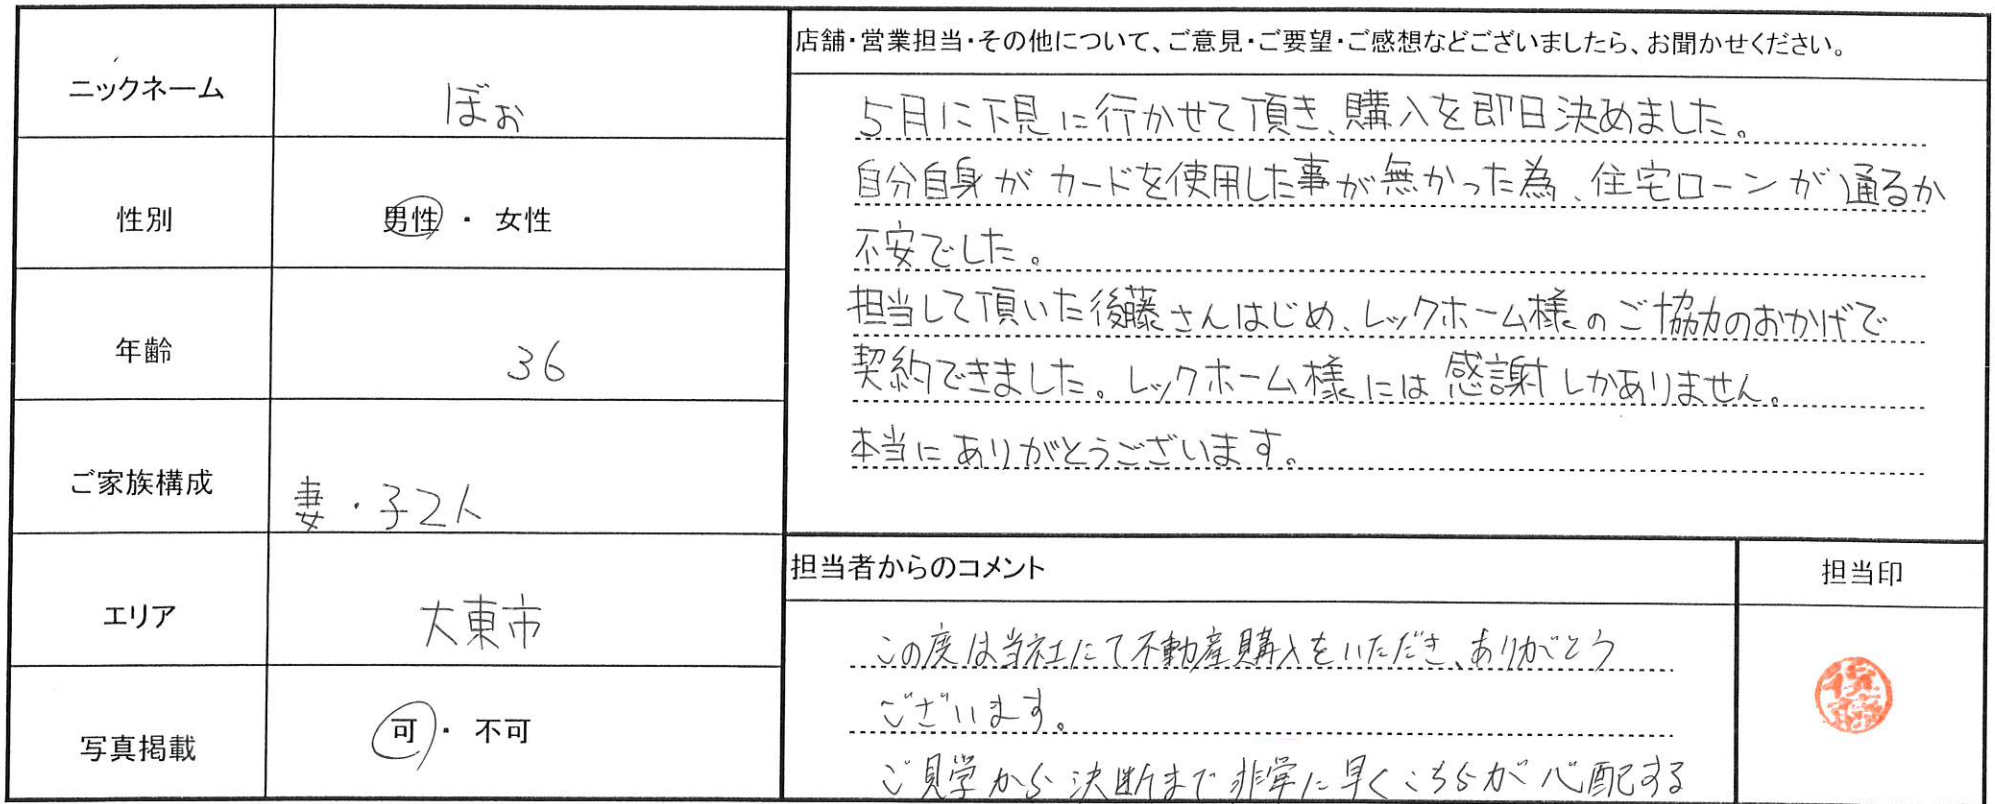 ニックネーム
ぼぉ
性別
男性 ・ 女性
年齢
36
ご家族構成
妻・子2人
エリア
大東市
写真掲載
可 ・ 不可
店舗・営業担当・その他について、ご意見・ご要望・ご感想などございましたら、お聞かせください。
5月に下見に行かせて頂き、購入を即日決めました。
自分自身がカードを使用した事が無かった為、住宅ローンが通るか
不安でした。
担当して頂いた後藤さんはじめ、レックホーム様のご協力のおかげで
契約できました。レックホーム様には感謝しかありません。
本当にありがとうございます。
担当者からのコメント
この度は当社にて不動産購入をいただき、ありがとう
ございます。
ご見学から決断まで非常に早くこちらが心配する
担当印
後藤